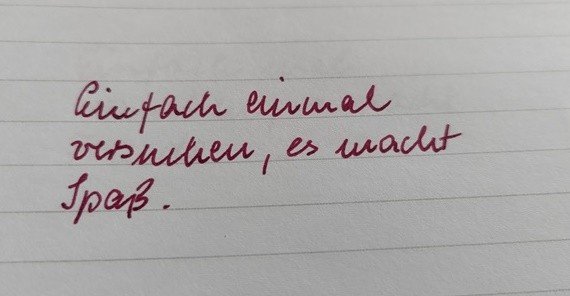 Einfach einmal
versuchen, es macht
Spaß.